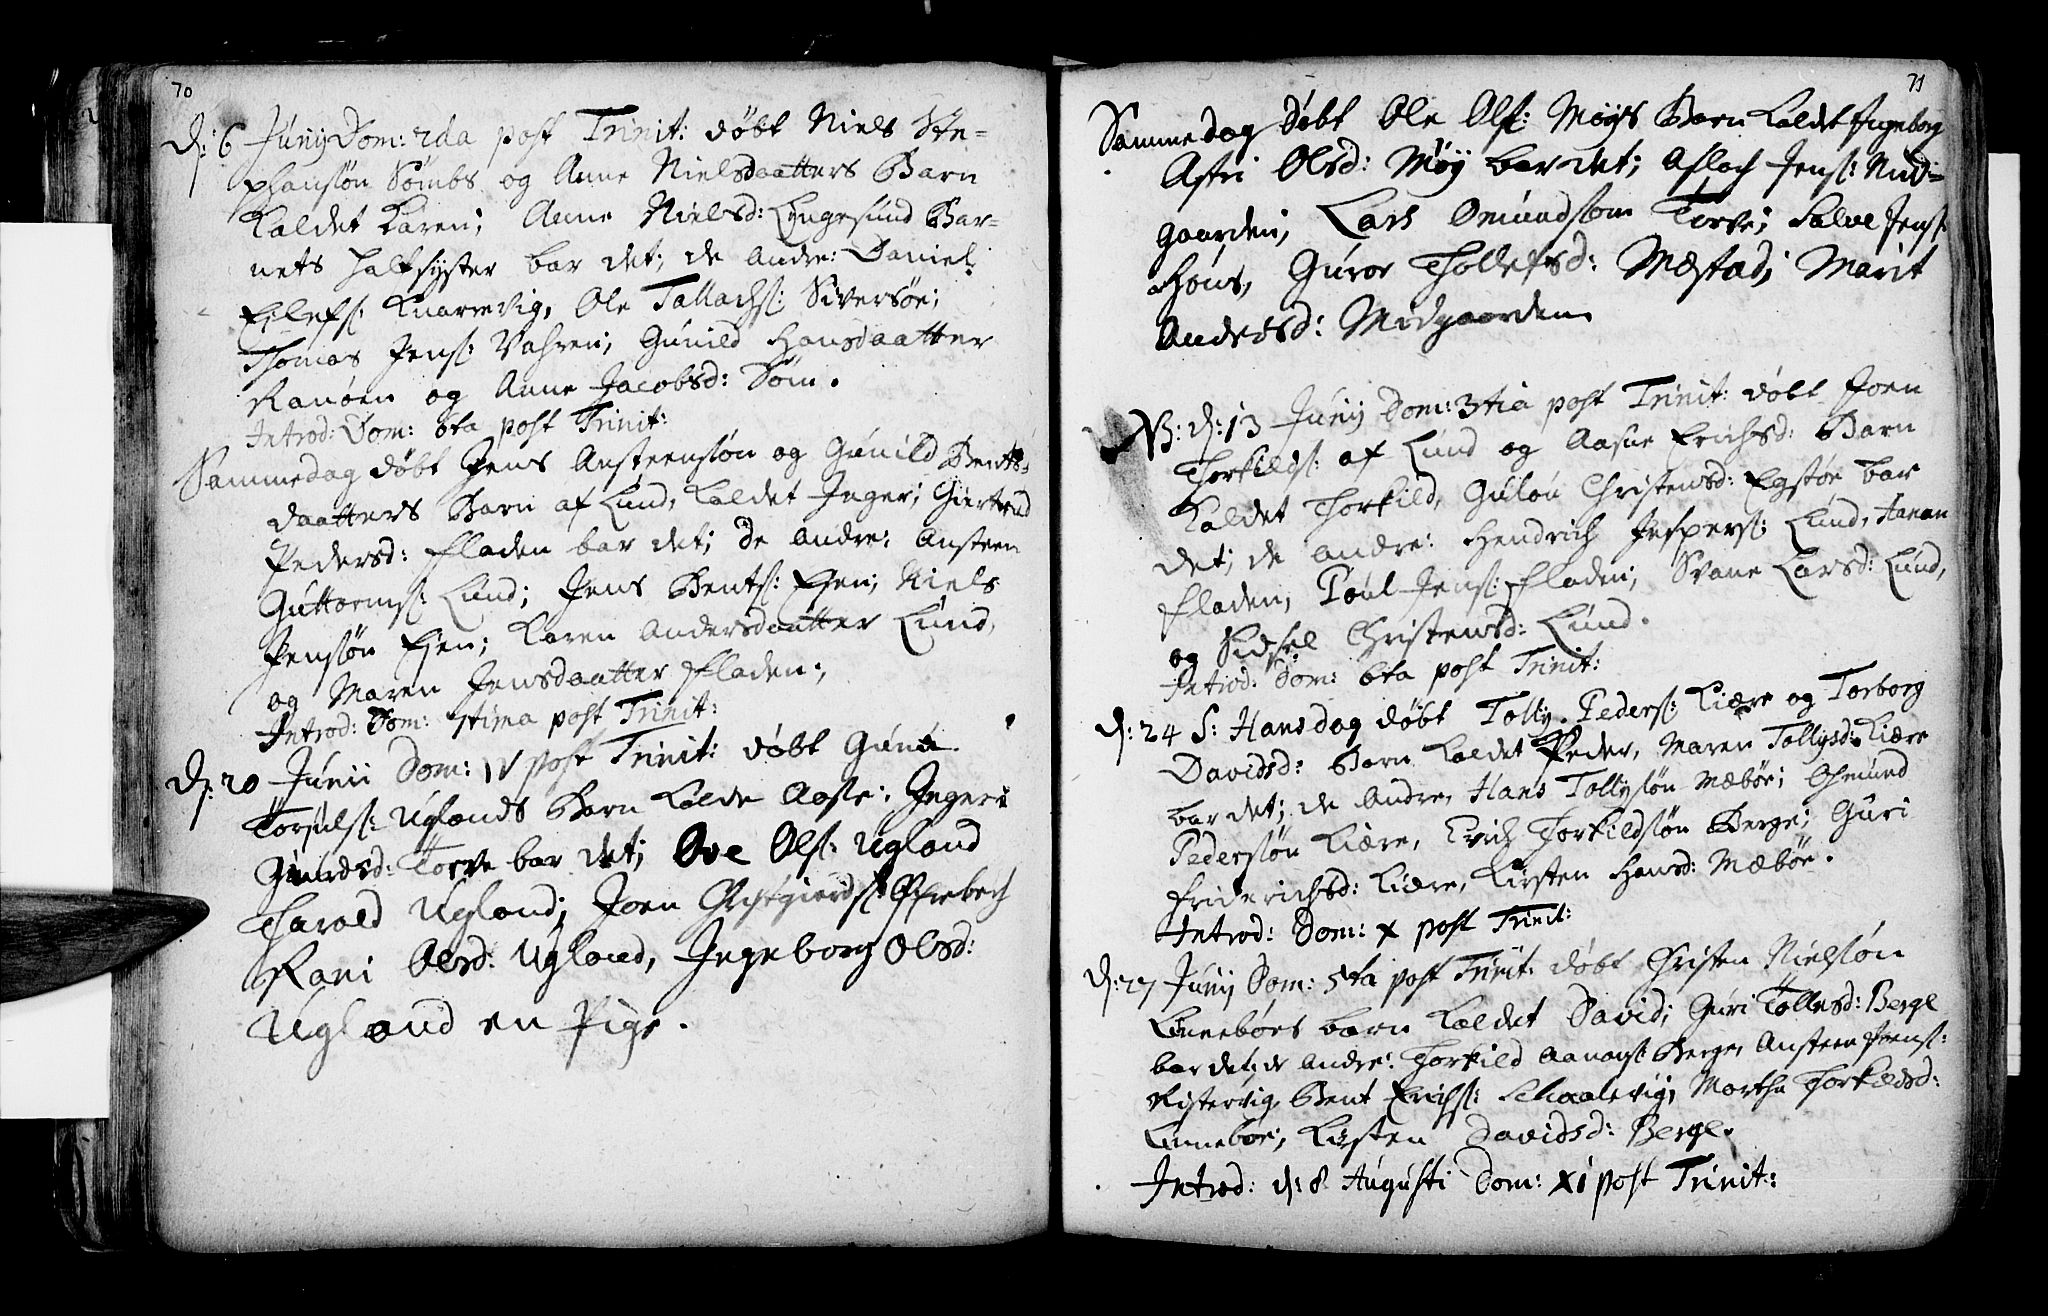 70
d: 6 Junij Dom: 2da post Trinit: døbt Niels Ste-
phanssøn Sømbs og Anne Nielsdaatters Barn
Kaldet Karen; Anne Nielsd: Lyngesund Bar-
nets halfsyster bar det; de andre: Daniel
Eilefs: Knarrevig, Ole Tallachs: Siversøe;
Thomas Jens: Vahren; Gunild Hansdaatter
Ranøen og Anne Jacobsd: Søm.
Introd: Dom: 6ta post Trinit:
Sammedag døbt Jens Ansteenssøn og Gunild Bents-
daatters Barn af Lund, Kaldet Inger; Giertrud
Pedersd: Fladen bar det; de andre: Ansteen
Guttorms: Lund; Jens Bents: Egen; Niels
Jenssøn Egen; Karen Andersdaatter Lund,
og Maren Jensdaatter Fladen;
Introd: Dom: 7tima post Trinit:
d: 20 Junii Dom: IV post Trinit: døbt
Uglands Barn Kalde Aasse; Inger
Torve bar det; Ove Ols: Ugland
Harald Ugland; Joen
Rani Olsd: Ugland, Ingeborg Olsd:
Ugland en Pige.
71
Sammedag døbt Ole Ols: Møys Barn Kaldet Ingeborg
Astri Olsd: Møy bar det; Aslach Jens: Mid-
gaarden, Lars Omundssøn Torve; Salve Jens:
Guror Thollefsd: Mæstad; Marit
Andersd: Midgaarden
NB: d: 13 Junij Dom: 3tia post Trinit: døbt Joen
Thorkilds: af Lund og Aasne Erichsd: Barn
Kaldet Thorkild, Gulou Christensd: Egstøe bar
det; de andre: Hendrich Jespers: Lund, Hanan
Fladen; Poul Jens: Fladen; Svane Larsd: Lund,
og Sidsel Christensd: Lund.
Introd: Dom: 6ta post Trinit:
d: 24 S: Hansdag døbt Tolly Peders: Kiære og Torborg
Davidsd: Barn Kaldet Peder, Maren Tollysd: Kiære
bar det; de andre, Hans Tollysøn Mæbøe; Osmund
Pederssøn Kiære, Erich Thorkildssøn Berge; Guri
Friderichsd: Kiære, Kirsten Hansd: Mæbøe.
Introd: Dom: X post Trinit:
d: 27 Junij Dom: 5ta post Trinit: døbt Christen Nielssøn
Linnebøes barn Kaldet David; Guri Tollesd: Berge
bar det; de andre: Thorkild Aanons: Berge, Ansteen Joens:
Ristervig, Bent Erichs: Schaalevig; Marthe Thorkildsd:
Linnebøe, Kisten Davidsd: Berge.
Introd: d: 8 Augusti Dom: XI post Trinit: